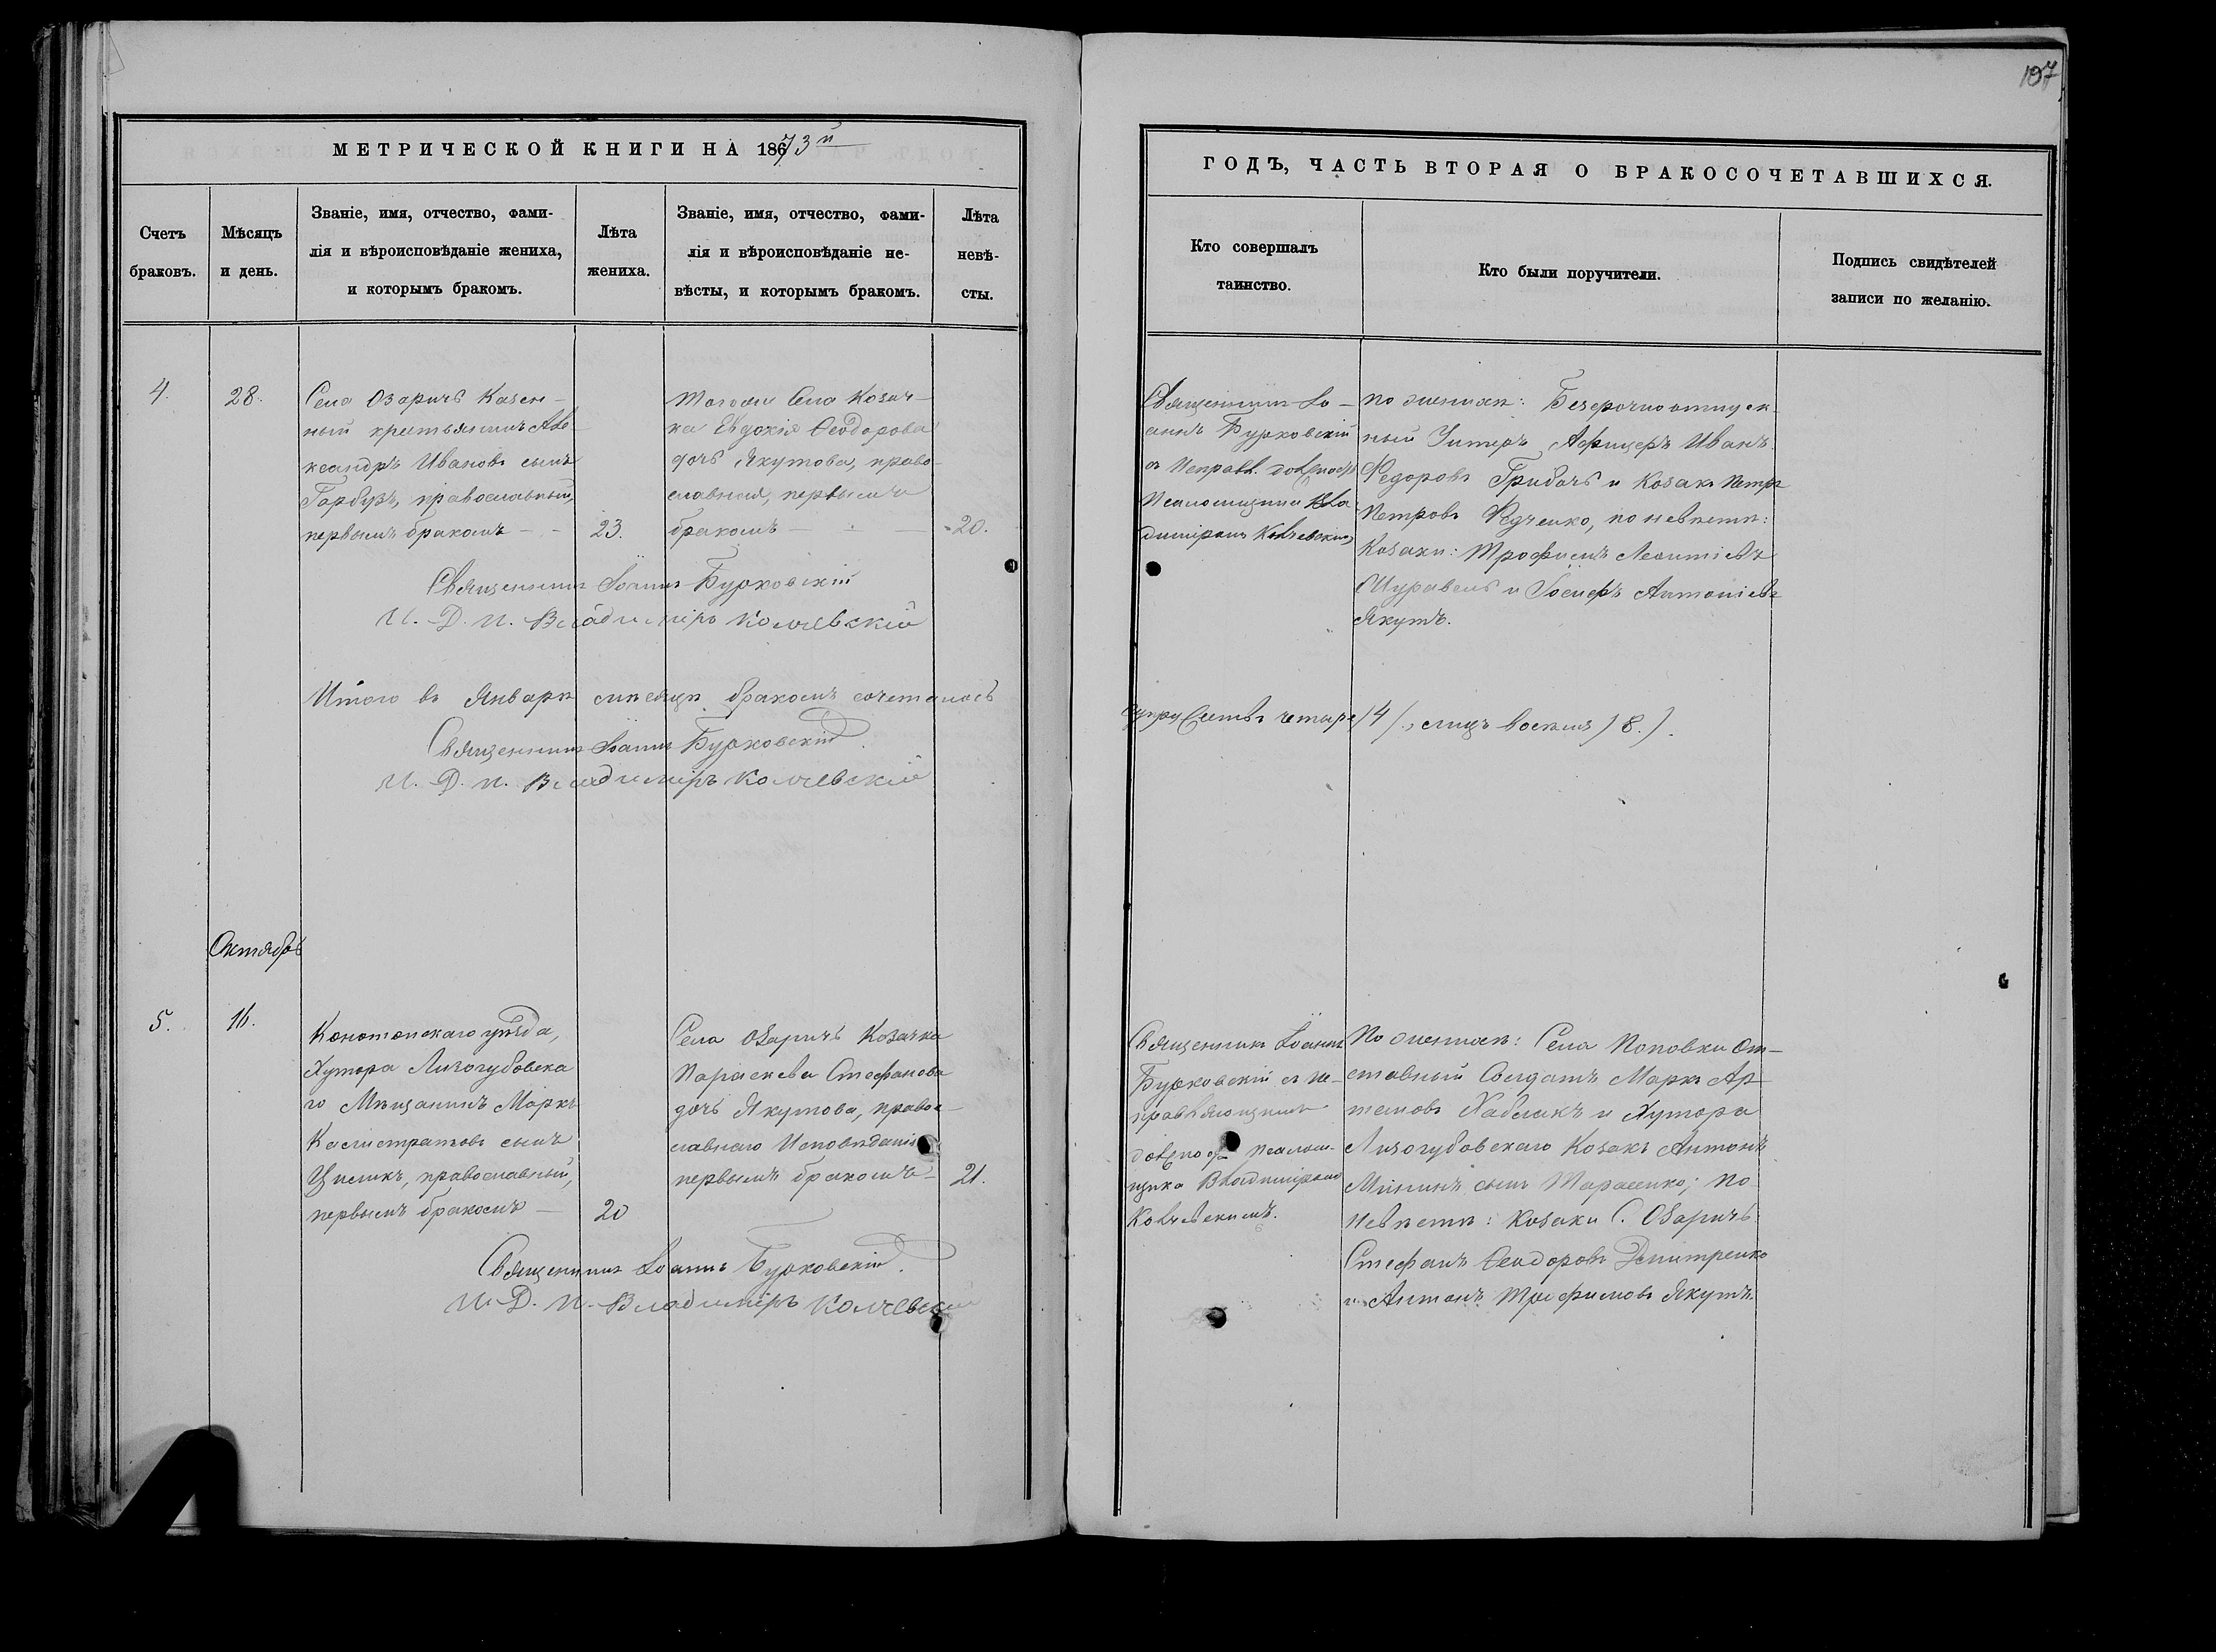 107
МЕТРИЧЕСКОЙ КНИГИ НА 1873й
ГОДЪ, ЧАСТЬ ВТОРАЯ О БРАКОСОЧЕТАВШИХСЯ.
Счетъ
браковъ.
Мѣсяцъ
и день.
Званіе, имя, отчество, фами-
лія и вѣроисповѣданіе жениха,
и которымъ бракомъ.
Лѣта
жениха.
Званіе, имя, отчество, фами-
лія и вѣроисповѣданіе не-
вѣсты, и которымъ бракомъ.
Лѣта
невѣ-
сты.
Кто совершалъ
таинство.
Кто были поручители.
Подпись свидѣтелей
записи по желанію.
4.
28.
Села Озаричъ Казен-
ный крестьянинъ Але-
ксандръ Ивановъ сынъ
Гарбузъ, православный,
первымъ бракомъ - -
23.
Тогоже Села Козач-
ка Евдокія Ѳеодорова
дочь Якутова, право-
славная, первымъ
бракомъ
20.
Священникъ Іо-
аннъ Бурковскій
съ Исправл. должность
Псаломщика Вла
диміромъ Колчевскимъ
по женихѣ: Безсрочноотпуск-
ный Унтеръ Афицеръ Иванъ
Федоровъ Грибачъ и Козакъ Петръ
Петровъ Федченко, по невѣстѣ:
Козаки: Трофимъ Леонтіевъ
Журавель и Іосифъ Антоніевъ
Якутъ.
Священникъ Іоаннъ Бурковскій
И. Д. П. Владиміръ Колчевскій
Итого въ Январѣ мѣсяцѣ бракомъ сочеталось
супружествъ четыре (4), лицъ восемь (8.).
Священникъ Іоаннъ Бурковскій
И. Д. П. Владиміръ Колчевскій
Октябрь
5.
16.
Конотопскаго уѣзда,
Хутора Лизогубовска
го Мѣщанинъ Маркъ
Калистратовъ сынъ
Цисикъ, православный,
первымъ бракомъ
20
Села Озаричъ Козачка
Параскева Стефанова
дочь Якутова, право
славнаго Исповѣданія
первымъ бракомъ
21.
Священникъ Іоаннъ
Бурковскій съ Ис-
правляющимъ
должность Псалом-
щика Владиміромъ
Колчевскимъ.
По женихѣ: Села Поповки От-
ставный Солдатъ Маркъ Ар-
темовъ Хаблакъ и Хутора
Лизогубовскаго Козакъ Антонъ
Мининъ сынъ Тарасенко; по
невѣстѣ: Козаки С. Озаричъ:
Стефанъ Ѳеодоровъ Дмитренко
и Антонъ Трофимовъ Якутъ.
Священникъ Іоаннъ Бурковскій.
И. Д. П. Владиміръ Колчевскій